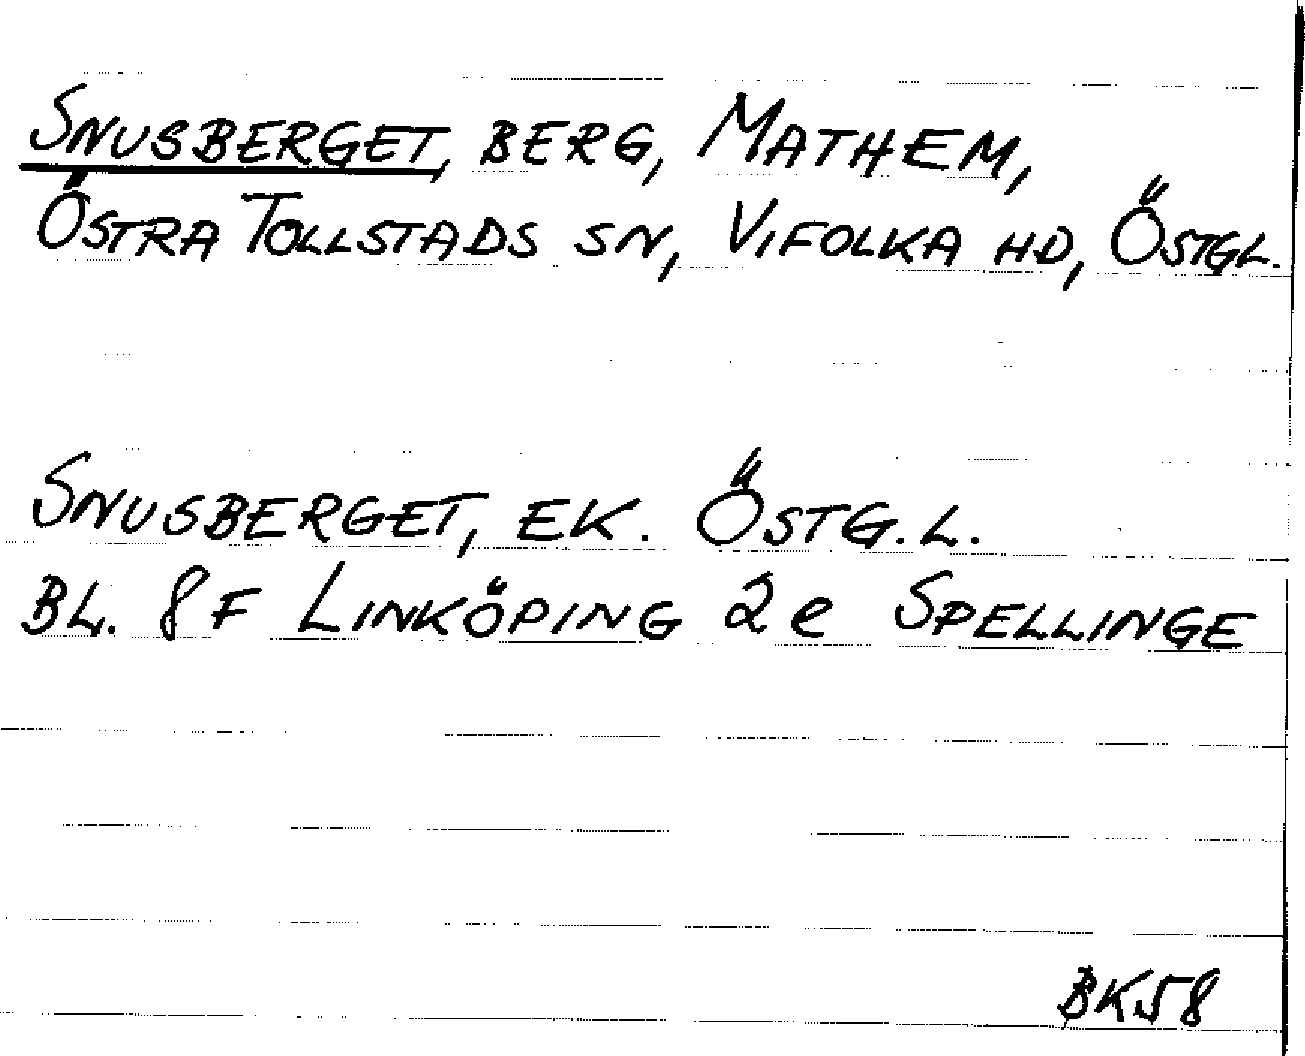 SNUSBERGET, BERG, MATHEM,
ÖSTRA TOLLSTADS SN, VIFOLKA HD, ÖSTGL.
SNUSBERGET, EK. ÖSTG.L.
BL. 8F LINKÖPING 2e SPELLINGE
BK58